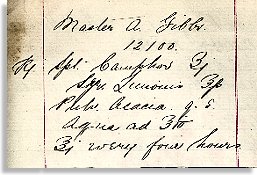 Master A. Gibbs.
12100.
Rx Spt. Camphor ʒj
Syr. Limonis ʒss
Pulv. Acacia q. s.
Aqua ad ʒiii
ʒj every four hours